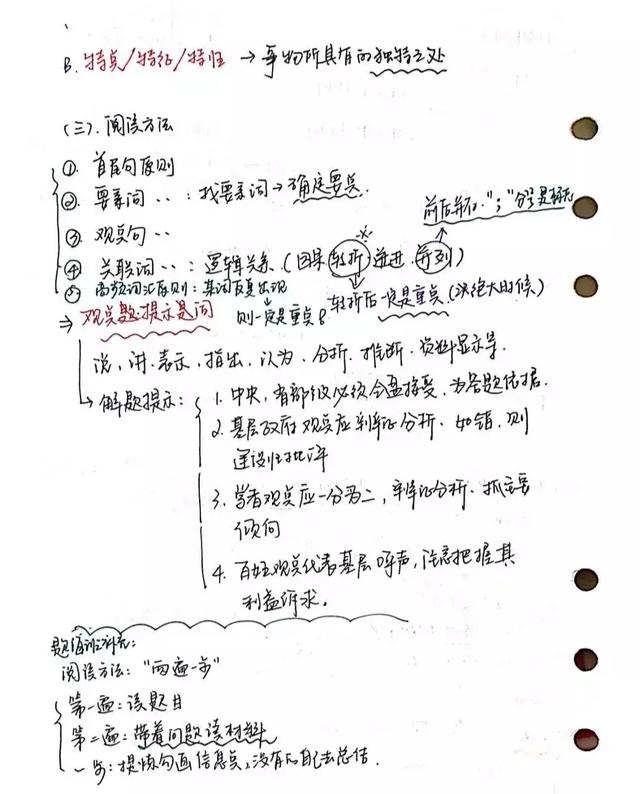 B. 特点/特征/特性 → 事物所具有的独特之处
(三). 阅读方法
① 首尾句原则
② 要素词 〃 : 找要素词→确定要点.
前后并和."；"分号是标志
③ 观点句 〃
④ 关联词 〃 : 逻辑关系 (因果 转折 递进 并列)
⑤ 高频词汇原则: 某词反复出现
则一定是重点。
转折后一定是重点 (决绝大时候)
⇒ 观点题提示是词
说, 讲. 表示, 指出, 认为. 分析. 推断. 资料显示等.
→ 解题提示:
1. 中央, 省部级必须全盘接受, 为答题依据.
2. 基层政府观点应辩证分析. 如错, 则
建设性批评
3. 学者观点应一分为二, 辩证分析. 抓主要
倾向
4. 百姓观点代表基层呼声, 注意把握其
利益诉求。
题海班补充:
阅读方法: "两遍一步"
第一遍: 读题目
第二遍: 带着问题读材料
一步: 提炼勾画信息点, 没有的自己去总结.